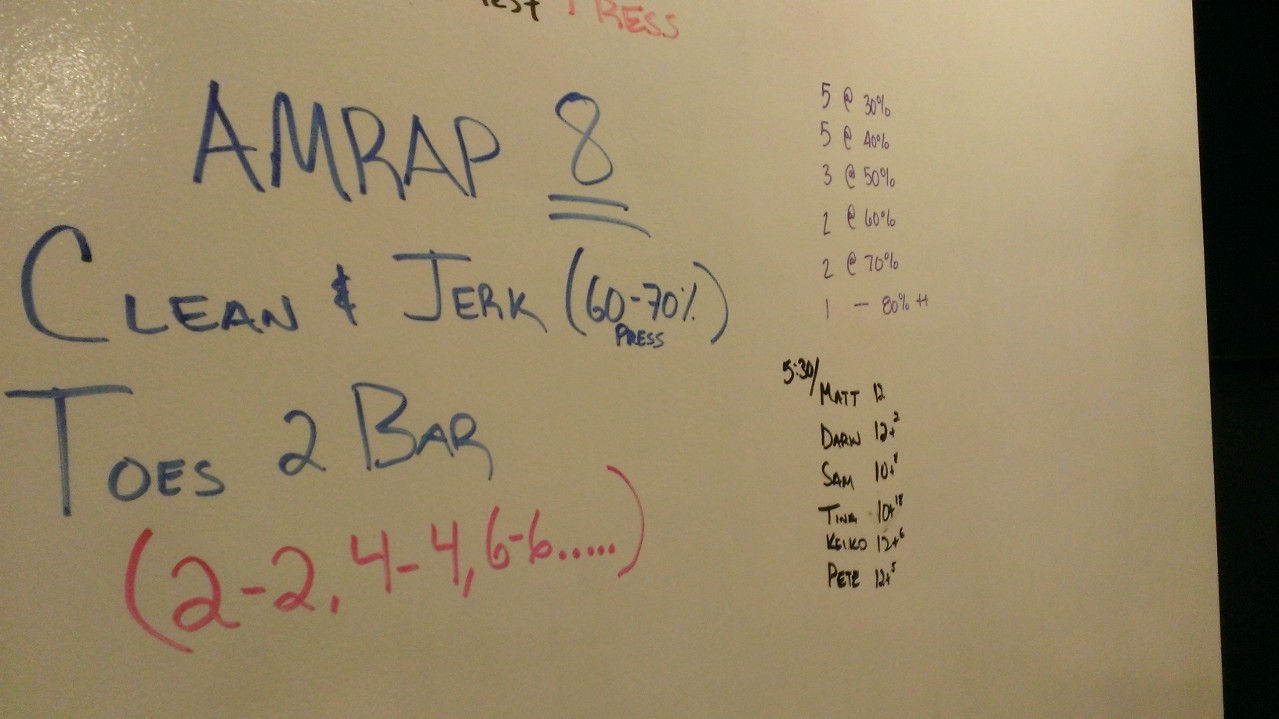 Test PRESS
AMRAP 8
CLEAN & JERK (60-70%)
PRESS
TOES 2 BAR
(2-2, 4-4, 6-6.....)
5 @ 30%
5 @ 40%
3 @ 50%
2 @ 60%
2 @ 70%
1 - 80% ++
5:30/
MATT 12
12+2
SAM 10+
TINA 10+18
KEIKO 12+6
PETE 12+5